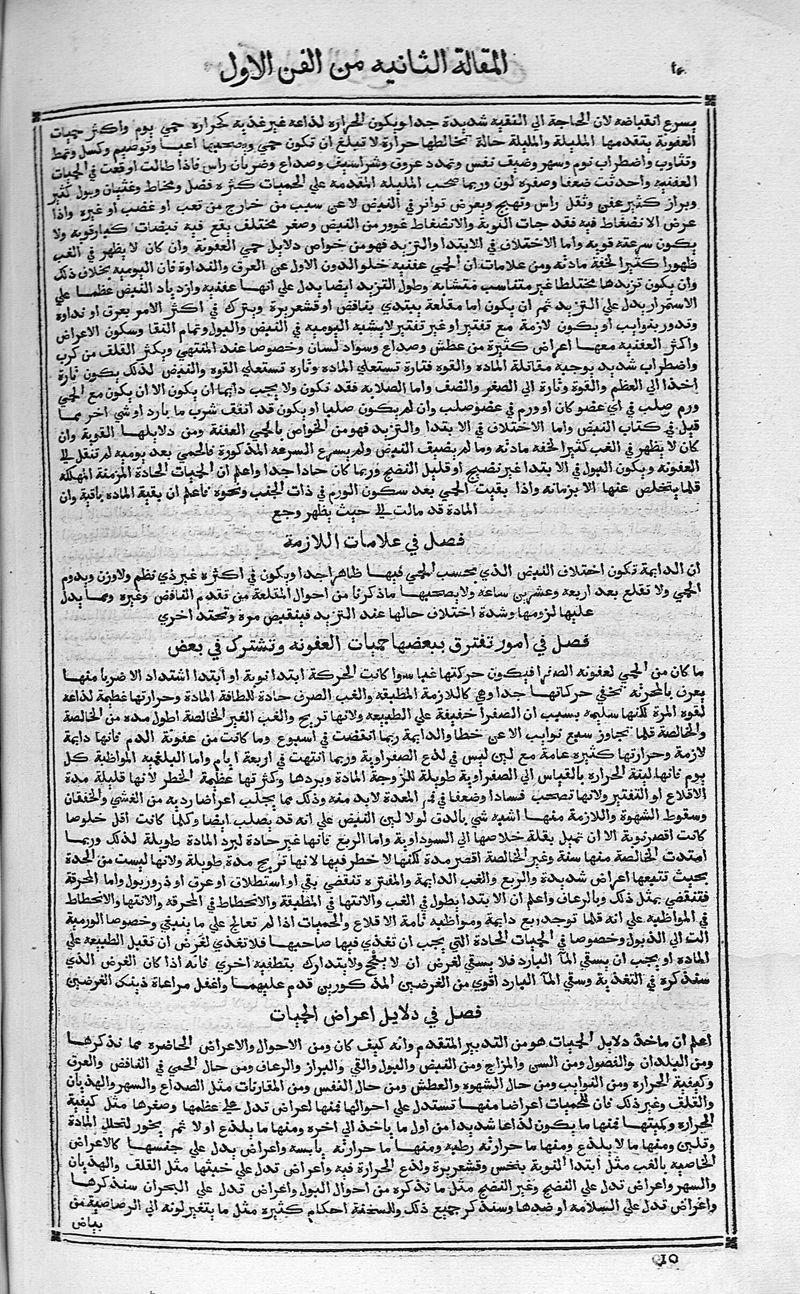 المقالة الثانيه من الفن الاول
يسرع انقباضه لان الحاجة الي النقيه شديدة جدا ويكون الحرارة لذاعه غير عذبه كحرارة حمي يوم واكثر حميات
العفونة يتقدمها المليلة والمليلة حالة تخالطها حرارة لا تبلغ ان تكون حمي ويصحبها اعيا وتوصيم وكسل وتمط
وتثاوب واضطراب نوم وسهر وضيف نفس وتمدد عروق وشراسيف وصداع وضربان راس فاذا طالت اوقعت في الحميات
العفنيه واحدثت ضعفا وصفرة لون وربما صحب المليلة المقدمه علي الحميات كثرة فضل ومخاط وغثيان وبول كثير
وبراز كثير عفن وثقل راس وتهيج ويعرض تواتر في النبض لا عن سبب من خارج من تعب او غضب او غيره واذا
عرض الانضغاط فيه فقد جات النوبة والانضغاط غوور من النبض وصغر مختلف يقع فيه نبضات كبار قوية ولا
يكون سرعته قوية واما الاختلاف في الابتدا والتزيد فهو من خواص دلايل حمي العفونة وان كان لا يظهر في الغب
ظهورا كثيرا لخفة مادته ومن علامات ان الحمي عفنيه خلو الدور الاول عن العرق والنداوة فان اليوميه بخلاف ذلك
وان يكون تزيدها مختلطا غير متناسب متشابه وطول التزيد ايضا يدل علي انها عفنيه وازدياد النبض عظما علي
الاستمرار يدل علي التزيد ثم ان يكون اما مقلعة يبتدي بنافض او قشعريرة ويترك في اكثر الامر بعرق او نداوة
وتدور بنوايب او يكون لازمة مع تفتير او غير تفتير لا يشبه اليوميه في النبض والبول وتمام النقا وسكون الاعراض
واكثر العفنيه معها اعراض كثيرة من عطش وصداع وسواد لسان وخصوصا عند المنتهي ويكثر القلف من كرب
واضطراب شديد يوجبه مقاتلة المادة والقوة فتارة تستعلي المادة وتارة تستعلي القوة والنبض لذلك يكون تارة
اخذا الي العظم والقوة وتارة الي الصغر والضف واما الصلابه فقد تكون ولا يجب دايما ان يكون الا ان يكون مع الحمي
ورم صلب في اي عضو كان او ورم في عضو صلب وان لم يكون صلبا او يكون قد اتفق شرب ما بارد او شي اخر مما
قيل في كتاب النبض واما الاختلاف في الابتدا والتزيد فهو من الخواص بالحمي العفنة ومن دلايلها القوية وان
كان لا يظهر في الغب كثيرا لخفه مادته وما لم يضيف النبض ولم يسرع السرعه المذكورة فالحمي بعد يوميه لم تنتقل الي
العفونه ويكون البول في الابتدا غير نضيج او قليل النضج وربما كان حادا جدا واعلم ان الحميات الحادة المزمنة المهلكه
قلما يتخلص عنها الا بزمانه واذا بقيت الحمي بعد سكون الورم في ذات الجنب ونحوه فاعلم ان بقية المادة باقية وان
المادة قد مالت الي حيث يظهر وجع
فصل في علامات اللازمة
ان الدايمة تكون اختلاف النبض الذي بحسب الحمي فيها ظاهرا جدا ويكون في اكثره غير ذي نظم ولا وزن ويدوم
الحمي ولا تقلع بعد اربعه وعشرين ساعه ولا يصحبها ما ذكرنا من احوال المقلعة من تقدم النافض وغيره ومما يدل
عليها لزومها وشدة اختلاف حالها عند التزيد فينقبض مره وتحتد اخري
فصل في امور تفترق ببعضها حميات العفونه وتشترك في بعض
ما كان من الحمي لعفونه الصفرا فيكون حركتها غبا سوا كانت الحركة ابتدا نوبة او ابتدا اشتداد الا ضربا منها
يعرف بالمحرقه تخفي حركاتها جدا وهي كاللازمة المطبقه والغب الصرف حادة للطافة المادة وحرارتها عظيمة لذاعه
لقوه المرة لكنها سليمه بسبب ان الصفرا خفيفة علي الطبيعه ولانها تريح والغب الغير الخالصة اطول مده من الخالصة
والخالصة قلما تجاوز سبع نوايب الا عن خطا والدايمة ربما انقضت في اسبوع وما كانت من عفونة الدم فانها دايمة
لازمة وحرارتها كثيره عامة مع لين ليس في لذع الصفراوية وربما انتهت في اربعة ايام واما البلغميه المواظبة كل
يوم فانها لينة الحرارة بالقياس الي الصفراوية طويلة للزوجة المادة وبردها وكثرتها عظيمة الخطر لانها قليلة مدة
الاقلاع او التفتير ولانها تصحب فسادا وضعفا في فم المعدة لا بد منه وذلك مما يجلب اعراضا رديه من الغشي والخفقان
وسقوط الشهوة واللازمة منها اشبه شي بالدق لولا لين النبض علي انه قد يصلب ايضا وكلما كانت اقل خلوصا
كانت اقصر نوبة الا ان تميل بقلة خلاصها الي السوداوية واما الربع فانها غير حادة لبرد المادة طويلة لذلك وربما
امتدت الخالصة منها سنة وغير الخالصة اقصر مدة لكنها لا خطر فيها لانها تريح مدة طويلة ولانها ليست من الحدة
بحيث تتبعها اعراض شديدة والربع والغب الدايمة والمفتره تنقضي بقي او استطلاق او عرق او درور بول واما المحرقة
فتنقضي بمثل ذلك وبالرعاف واعلم ان الابتدا يطول في الغب والانتها في المطبقة والانحطاط في المحرقه والانتها والانحطاط
في المواظبه علي انه قلما توجد ربع دايمة ومواظبه تامة الاقلاع والحميات اذا لم تعالج علي ما ينبغي وخصوصا الورمية
الت الي الذبول وخصوصا في الحميات الحادة التي يجب ان تغذي فيها صاحبها فلا تغذي لغرض ان تقبل الطبيعه علي
المادة او يجب ان يسقي الماٰ البارد فلا يسقي لغرض ان لا يفجج ولا يتدارك بتطفيه اخري فانه اذا كان الغرض الذي
سنذكرة في التغذية وسقي الماٰ البارد اقوي من الغرضين المذكورين قدم عليهما واغفل مراعاة ذينك الغرضين
فصل في دلايل اعراض الحميات
اعلم ان ماخذ دلايل الحميات هو من التدبير المتقدم وانه كيف كان ومن الاحوال والاعراض الحاضره مما نذكرها
ومن البلدان والفصول ومن السن والمزاج ومن النبض والبول والقي والبراز والرعاف ومن حال الحمي في النافض والعرق
وكيفية الحراره ومن النوايب ومن حال الشهوه والعطش ومن حال النفس ومن المقارنات مثل الصداع والسهر والهذيان
والقلف وغير ذلك فان للحميات اعراضا منها تستدل علي احوالها فمنها اعراض تدل علي عظمها وصغرها مثل كيفية
الحرارة وكميتها فمنها ما يكون لذاعا شديدا من اول ما ياخذ الي اخره ومنها ما يلذع اولا ثم يخور لتحلل المادة
وتلين ومنها ما لا يلذع ومنها ما حرارته رطبه ومنها ما حرارته يابسه واعراض يدل علي جنسها كالاعراض
الخاصيه بالغب مثل ابتدا النوبة بنخس وقشعريرة ولذع الحرارة فيه واعراض تدل علي خبثها مثل القلف والهذيان
والسهر واعراض تدل علي النضج وغير النضج مثل ما نذكره من احوال البول واعراض تدل علي البحران سنذكرها
واعراض تدل علي السلامه او ضدها وسنذكر جميع ذلك وللسخنة احكام كثيره مثل ما يتغير لونه الي الرصاصيه من
بياض